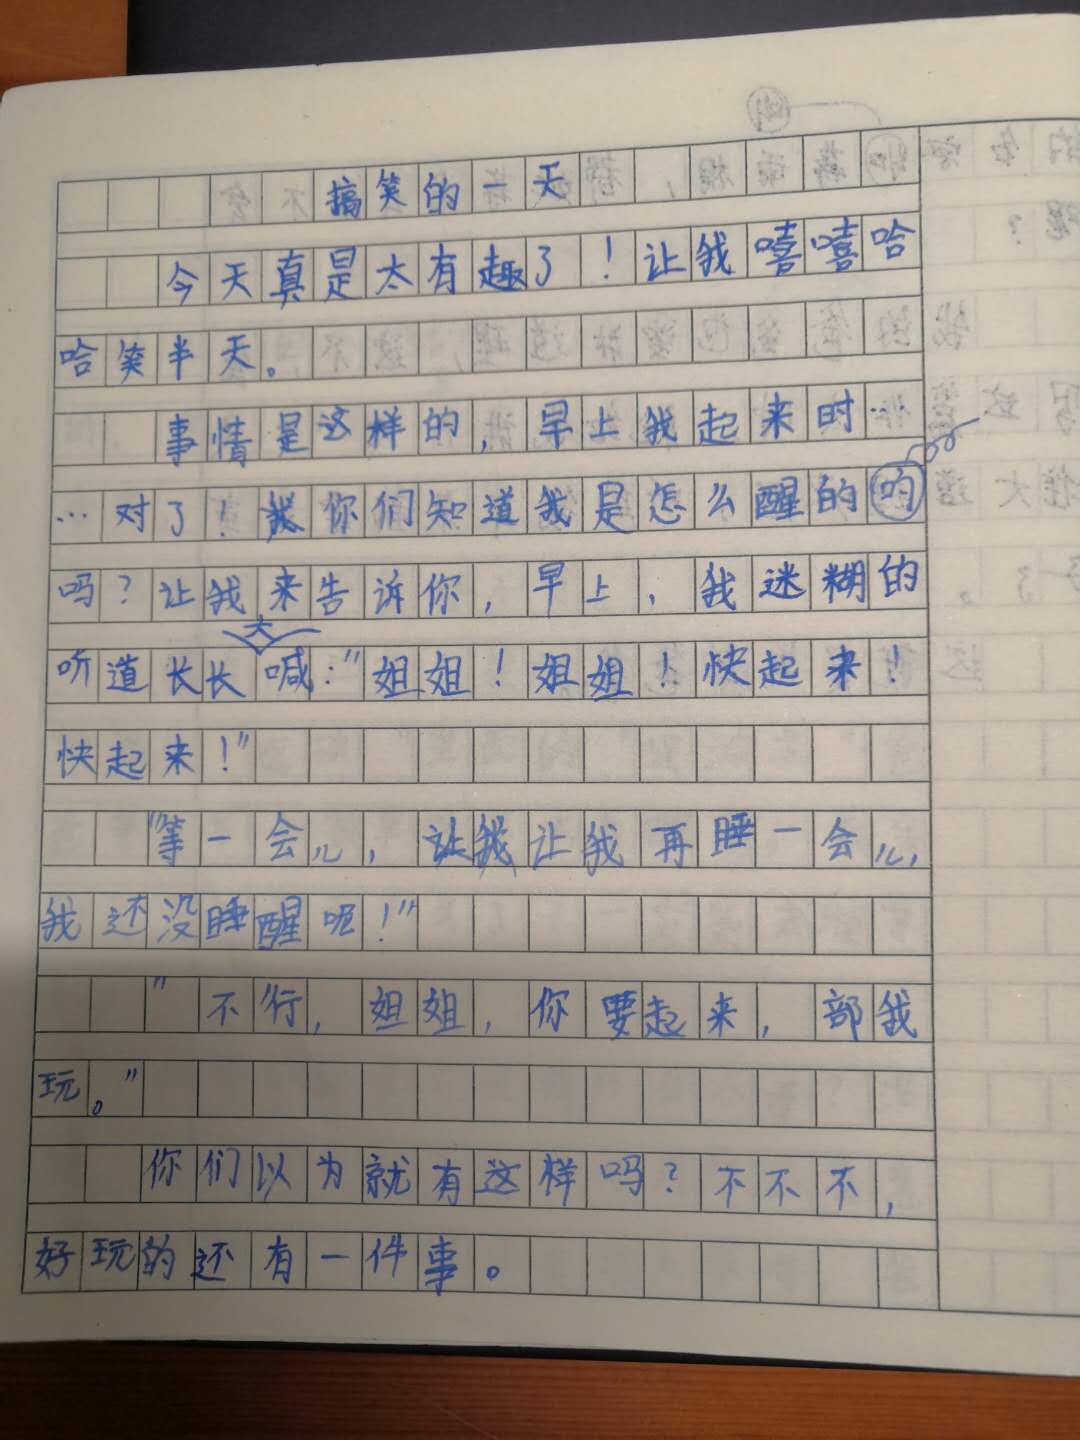 搞笑的一天
今天真是太有趣了！让我嘻嘻哈
哈笑半天。
事情是这样的，早上我起来时…
…对了！你们知道我是怎么醒的
吗？让我来告诉你，早上，我迷糊的
听道长长大喊："姐姐！姐姐！快起来！
快起来！"
"等一会儿，让我再睡一会儿，
我还没睡醒呢！"
"不行，姐姐，你要起来，部我
玩。"
你们以为就有这样吗？不不不，
好玩的还有一件事。